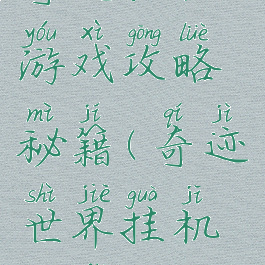 yóu xì gōng lüè
游戏攻略
mì jí qí jì
秘籍(奇迹
shì jiè guà jī
世界挂机